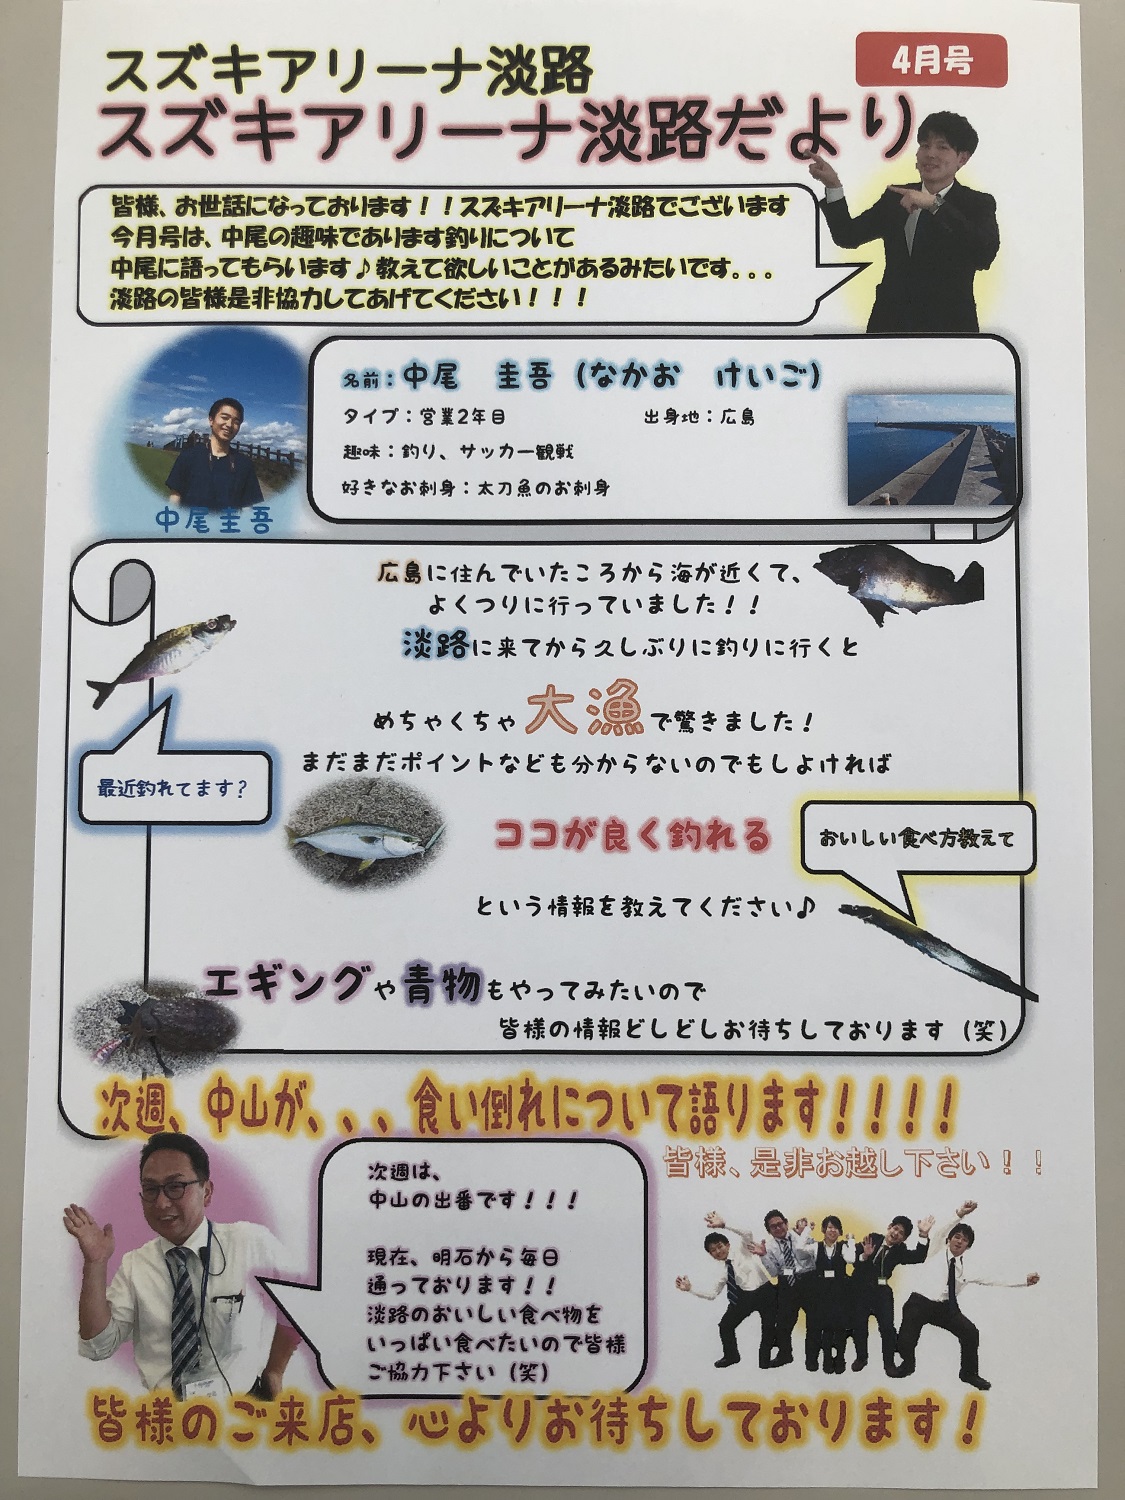 スズキアリーナ淡路
4月号
スズキアリーナ淡路だより
皆様、お世話になっております！！スズキアリーナ淡路でございます
今月号は、中尾の趣味であります釣りについて
中尾に語ってもらいます♪教えて欲しいことがあるみたいです。。。
淡路の皆様是非協力してあげてください！！！
名前：中尾　圭吾（なかお　けいご）
タイプ：営業2年目　出身地：広島
趣味：釣り、サッカー観戦
好きなお刺身：太刀魚のお刺身
中尾圭吾
広島に住んでいたころから海が近くて、
よくつりに行っていました！！
淡路に来てから久しぶりに釣りに行くと
めちゃくちゃ大漁で驚きました！
まだまだポイントなども分からないのでもしよければ
最近釣れてます？
ココが良く釣れる
おいしい食べ方教えて
という情報を教えてください♪
エギングや青物もやってみたいので
皆様の情報どしどしお待ちしております（笑）
次週、中山が、、、食い倒れについて語ります！！！！
皆様、是非お越し下さい！！
次週は、
中山の出番です！！！
現在、明石から毎日
通っております！！
淡路のおいしい食べ物を
いっぱい食べたいので皆様
ご協力下さい（笑）
皆様のご来店、心よりお待ちしております！